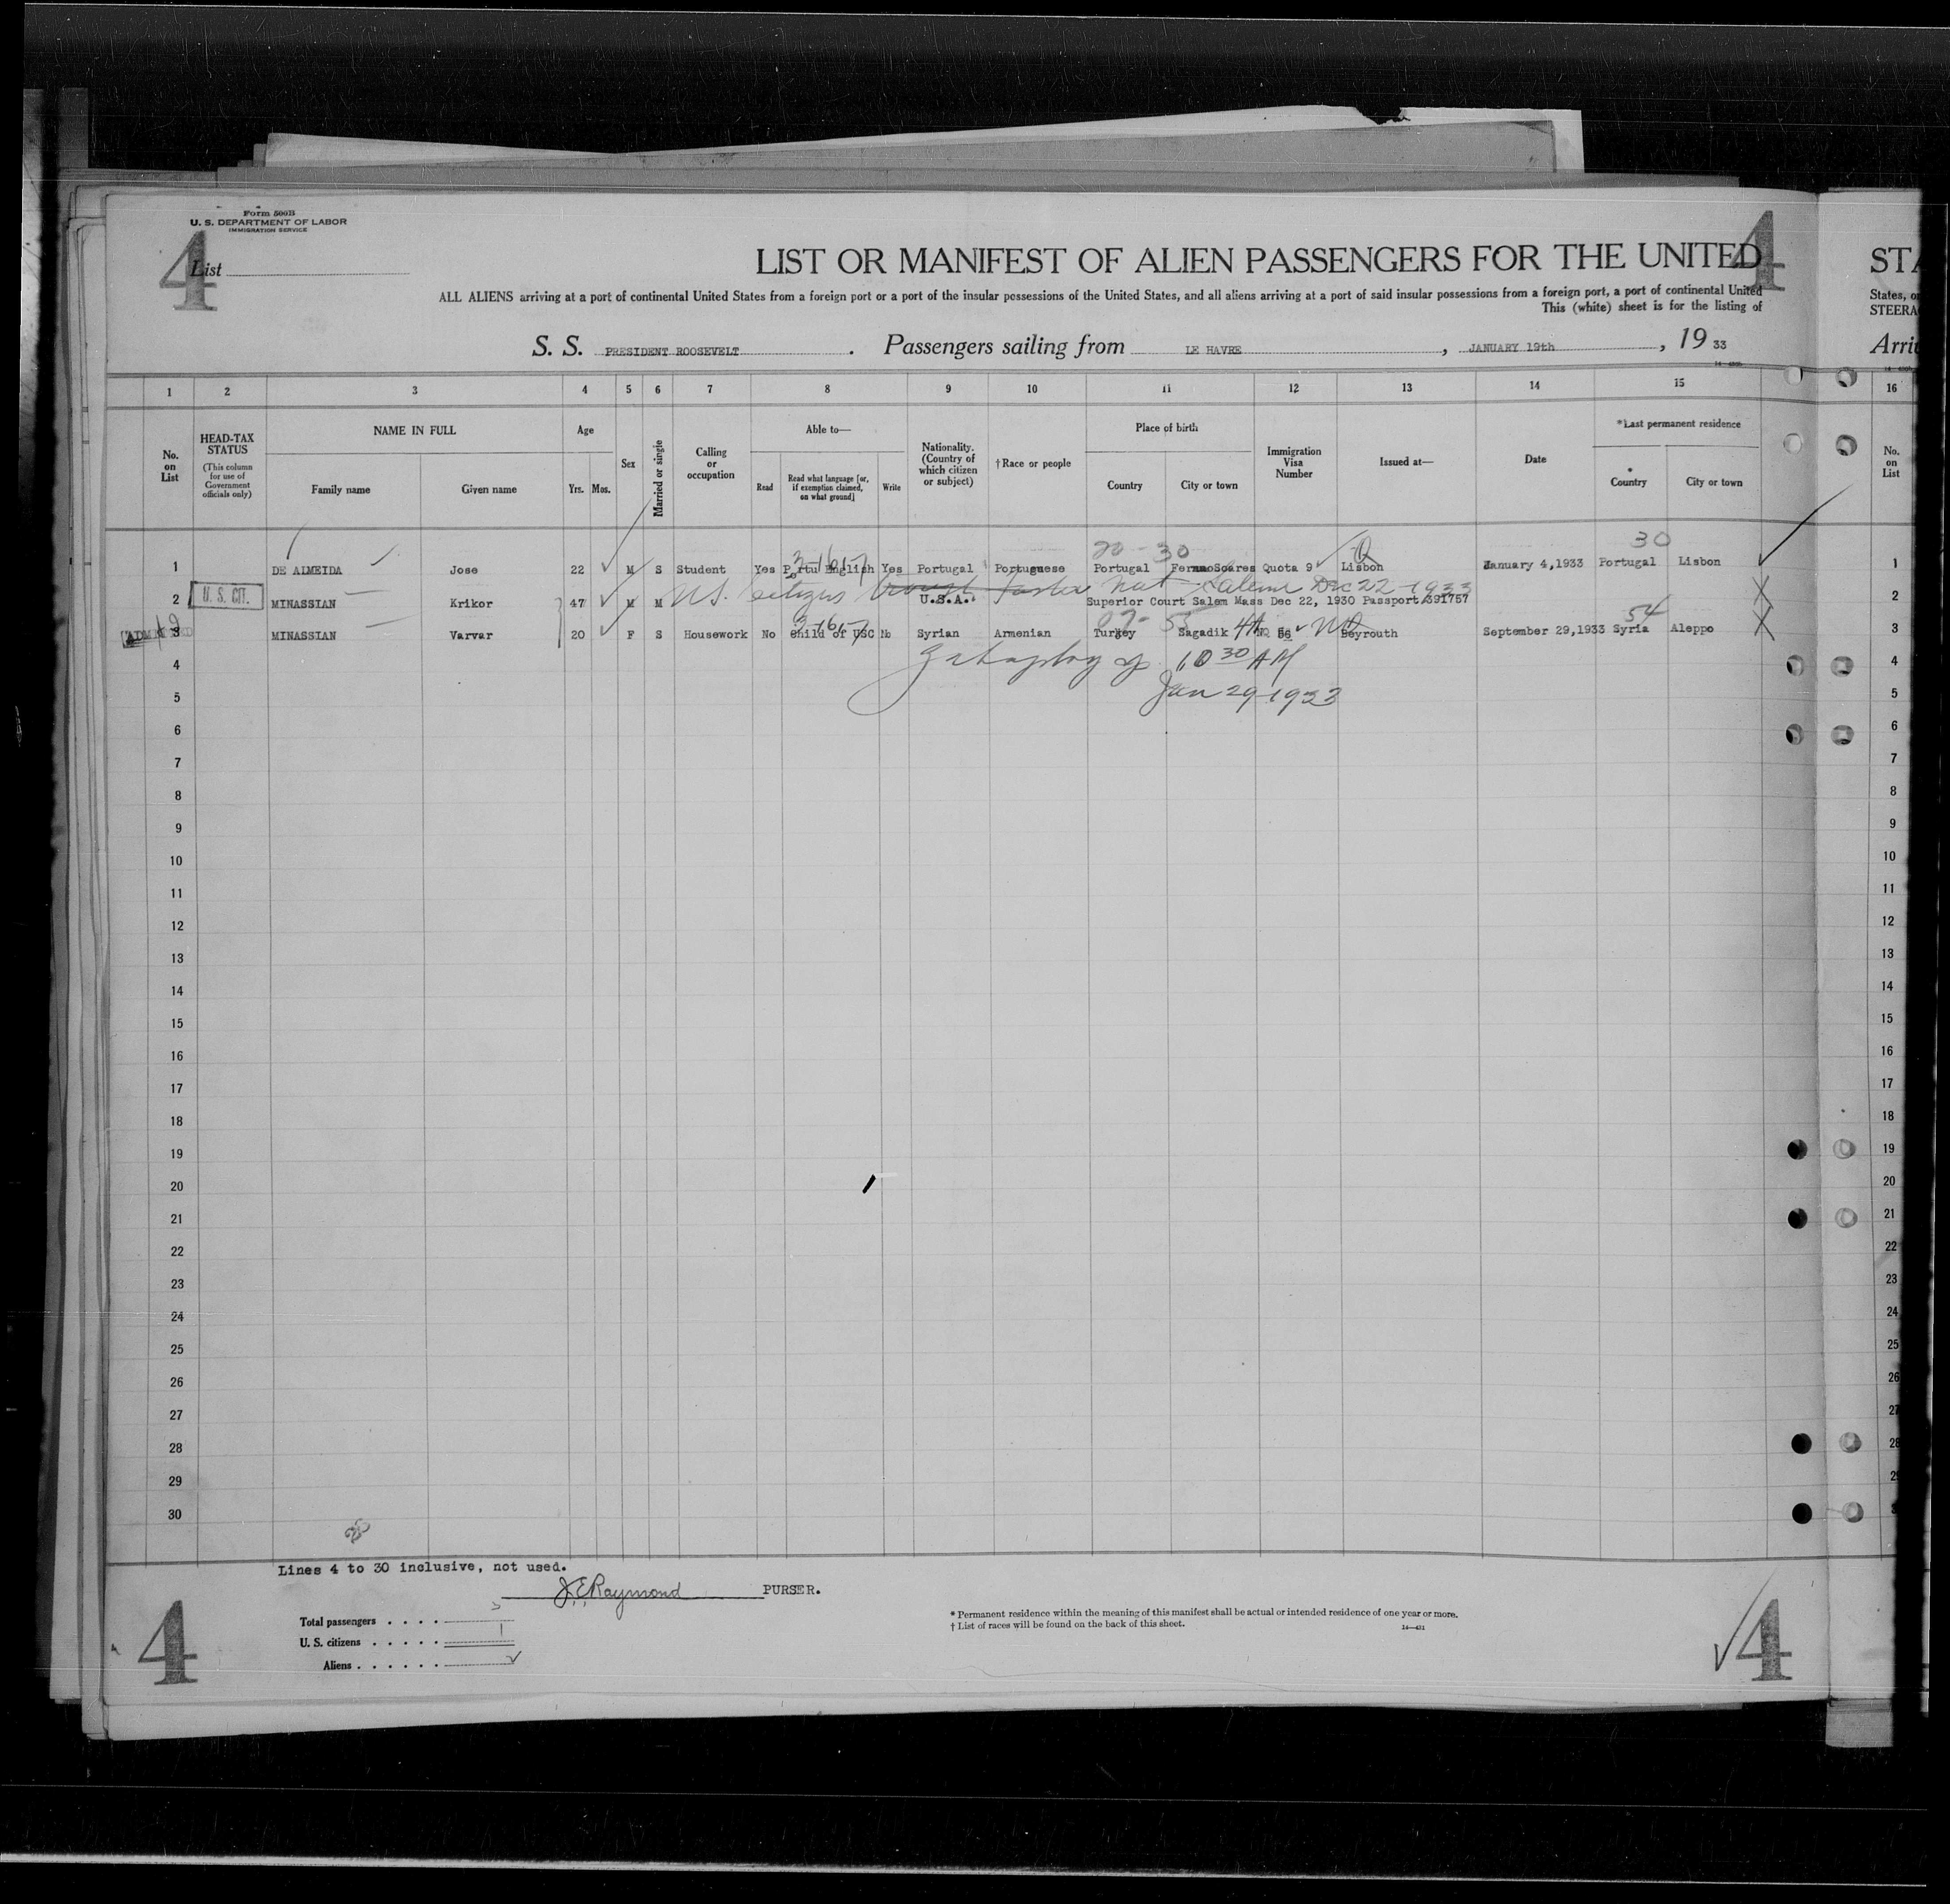 Form 500B
U. S. DEPARTMENT OF LABOR
IMMIGRATION SERVICE
4 List 4
LIST OR MANIFEST OF ALIEN PASSENGERS FOR THE UNITED
STA
ALL ALIENS arriving at a port of continental United States from a foreign port or a port of the insular possessions of the United States, and all aliens arriving at a port of said insular possessions from a foreign port, a port of continental United
States, o
This (white) sheet is for the listing of
STEERA
S. S. PRESIDENT ROOSEVELT. Passengers sailing from LE HAVRE, JANUARY 19th, 19 33
Arri
1 2 3 4 5 6 7 8 9 10 11 12 13 14 15 16
No. on List
HEAD-TAX STATUS
(This column for use of Government officials only)
NAME IN FULL
Family name Given name
Age
Yrs. Mos.
Sex
Married or single
Calling or occupation
Able to—
Read
Read what language [or, if exemption claimed, on what ground]
Write
Nationality. (Country of which citizen or subject)
†Race or people
Place of birth
Country City or town
Immigration Visa Number
Issued at—
Date
*Last permanent residence
Country City or town
No. on List
3-1617 20-30 Q 30
1 DE ALMEIDA Jose 22 M S Student Yes Portu English Yes Portugal Portuguese Portugal FernaoSoares Quota 9 Lisbon January 4,1933 Portugal Lisbon 1
U.S. Citizen Nat. Salem Dec 22-1933
U. S. CIT.
2 MINASSIAN Krikor 47 M M U.S.A. Superior Court Salem Mass Dec 22, 1930 Passport 391757 2
3-1617 54
ADMITTED
3 MINASSIAN Varvar 20 F S Housework No Child of USC No Syrian Armenian Turkey Sagadik 4A NQ 56 NQ Beyrouth September 29,1933 Syria Aleppo 3
4 10 30 AM 4
5 Jan 29-1933 5
6 6
7 7
8 8
9 9
10 10
11 11
12 12
13 13
14 14
15 15
16 16
17 17
18 18
19 19
20 20
21 21
22 22
23 23
24 24
25 25
26 26
27 27
28 28
29
30
Lines 4 to 30 inclusive, not used.
J.E. Raymond PURSER.
Total passengers . . . .
U. S. citizens . . . . . 1
Aliens . . . . . .
* Permanent residence within the meaning of this manifest shall be actual or intended residence of one year or more.
† List of races will be found on the back of this sheet.
14—421
4 4